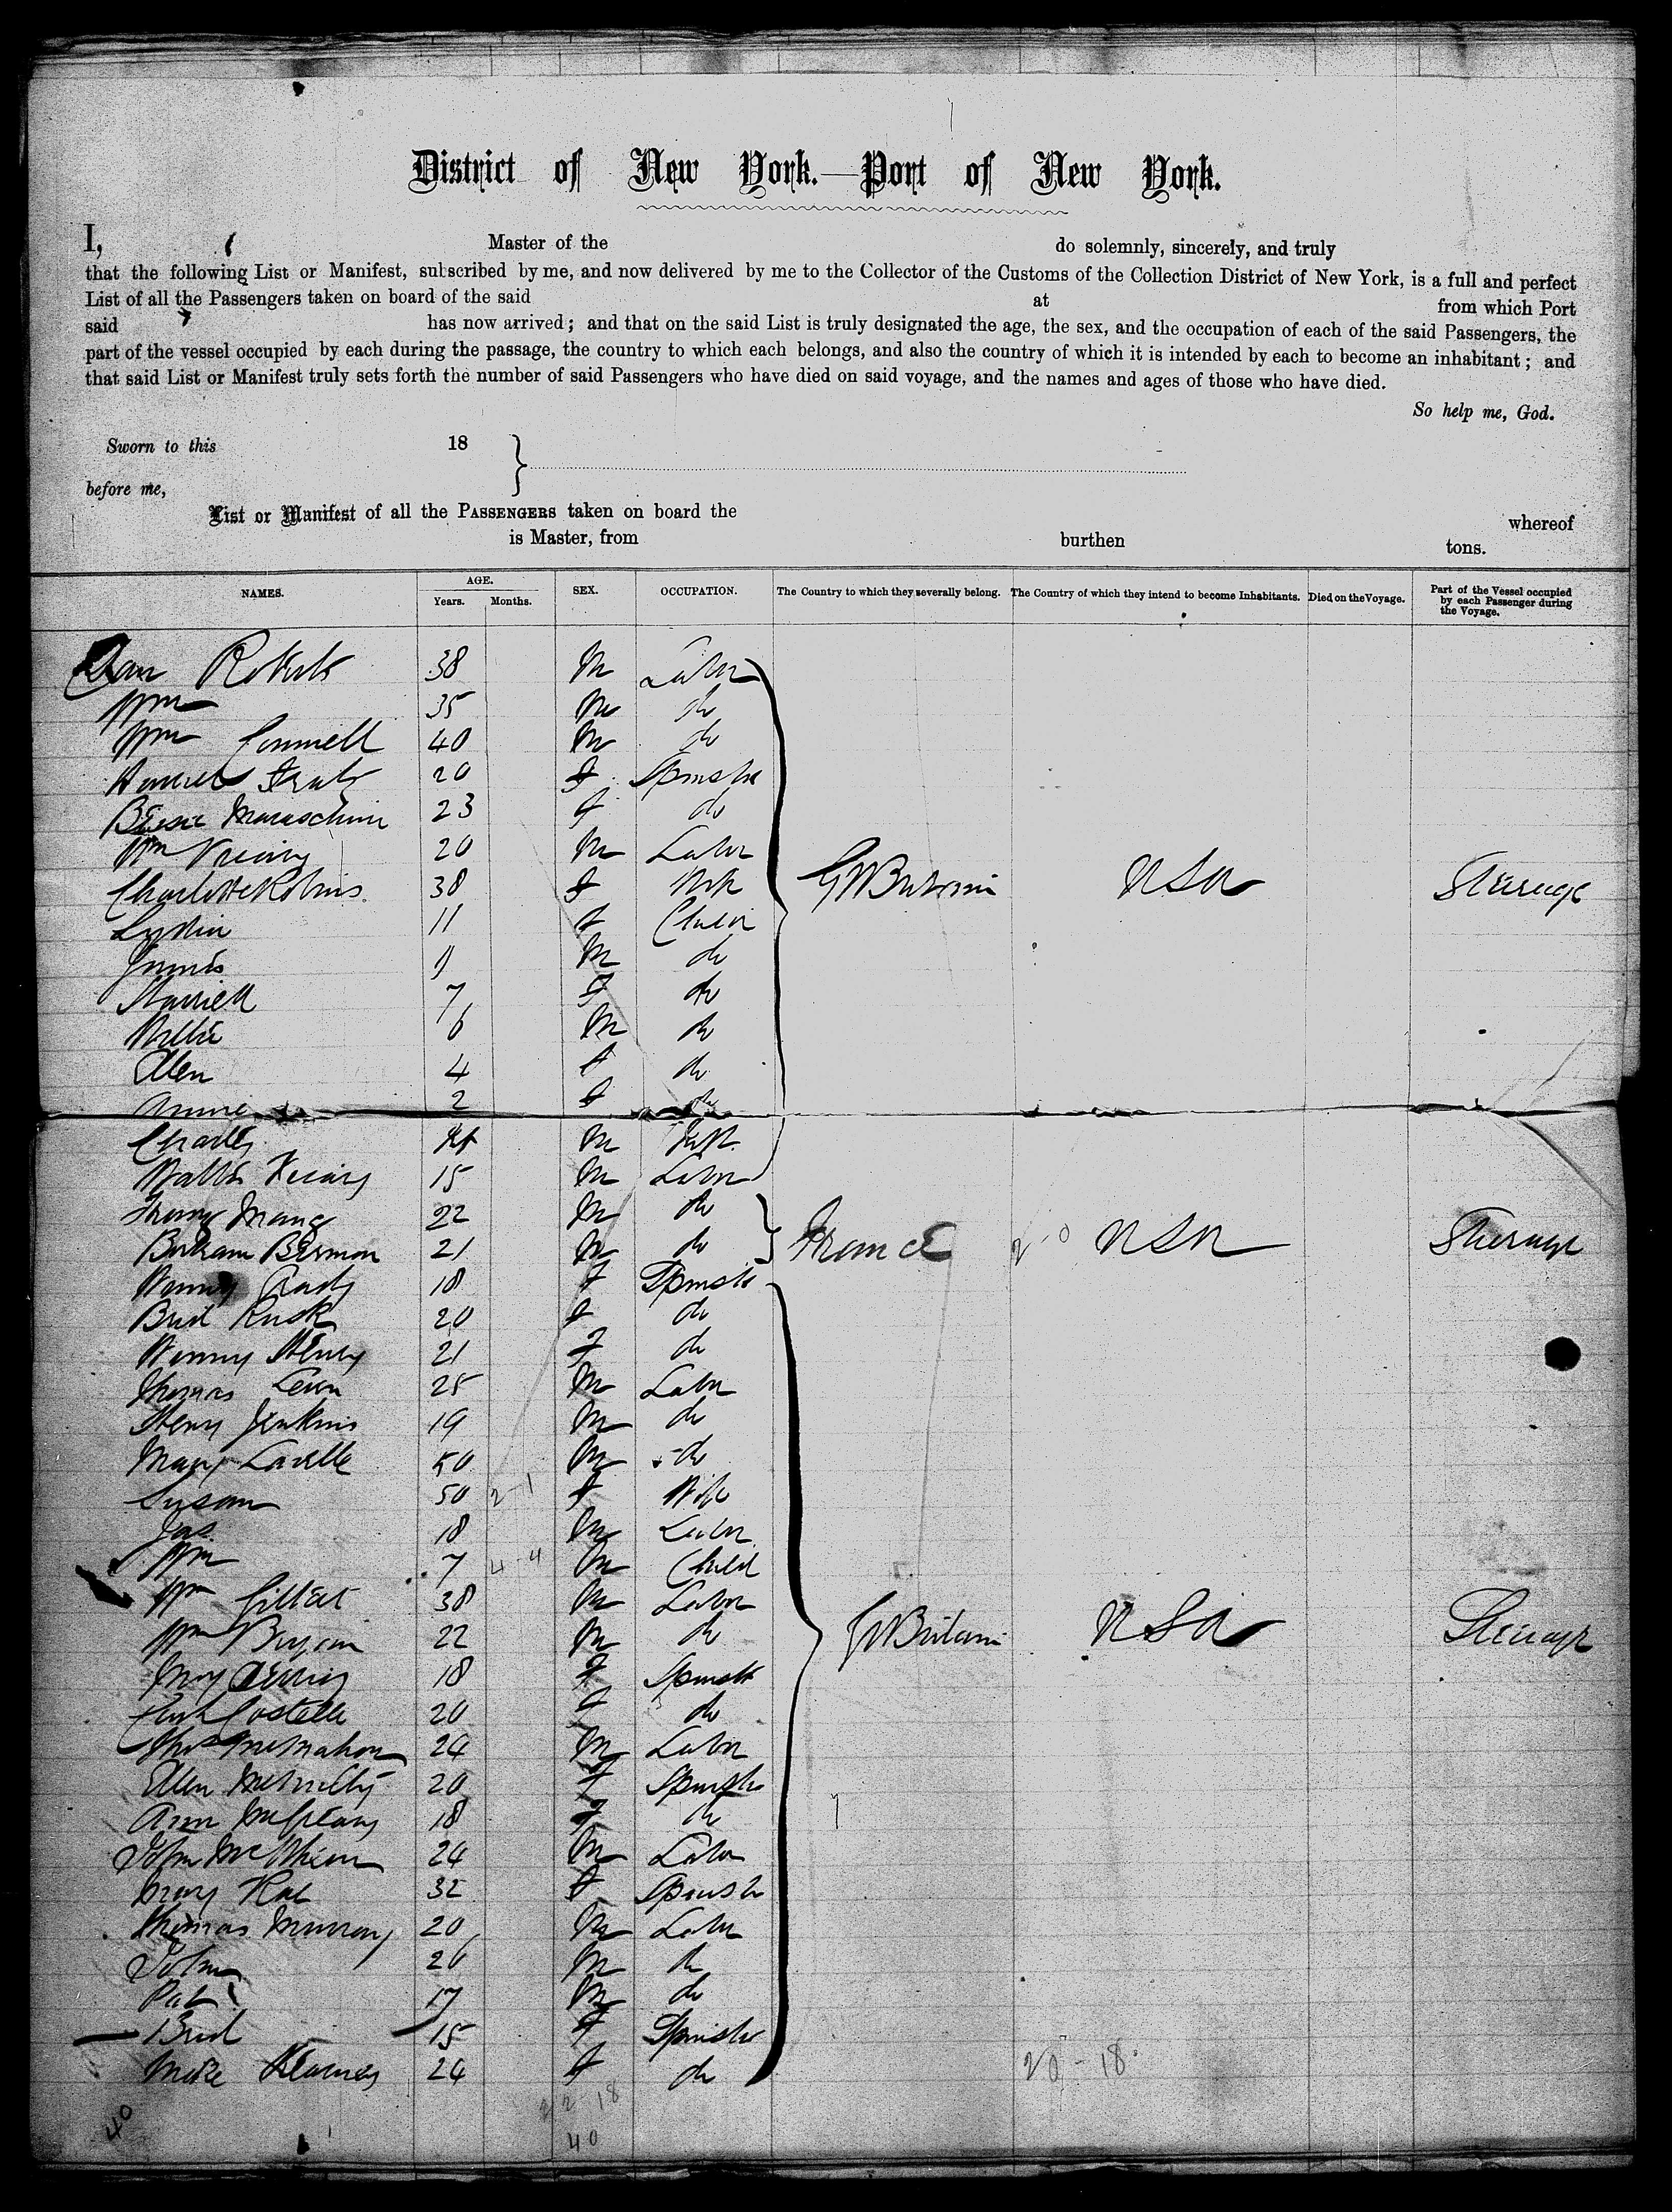 District of New York.—Port of New York.
I, Master of the do solemnly, sincerely, and truly
that the following List or Manifest, subscribed by me, and now delivered by me to the Collector of the Customs of the Collection District of New York, is a full and perfect
List of all the Passengers taken on board of the said at from which Port
said has now arrived; and that on the said List is truly designated the age, the sex, and the occupation of each of the said Passengers, the
part of the vessel occupied by each during the passage, the country to which each belongs, and also the country of which it is intended by each to become an inhabitant; and
that said List or Manifest truly sets forth the number of said Passengers who have died on said voyage, and the names and ages of those who have died.
So help me, God.
Sworn to this 18
before me,
List or Manifest of all the PASSENGERS taken on board the whereof
is Master, from burthen tons.
NAMES. AGE. Years. Months. SEX. OCCUPATION. The Country to which they severally belong. The Country of which they intend to become Inhabitants. Died on the Voyage. Part of the Vessel occupied by each Passenger during the Voyage.
Roberts 38 M Labor
Wm 35 M do
Wm Connell 40 M do
20 f Spinster
23 f do
Wm 20 M Labor
Charlotte Robins 38 f Wife Gt Britain USA Steerage
Lydia 11 f Child
James 9 M do
Harriett 7 f do
Willie 6 M do
Ellen 4 f do
Annie 2 f do
Charles M Inft
Walter 15 M Labor
22 M do
21 M do France USA Steerage
18 f Spinster
Brid Rusk 20 f do
21 f do
Thomas 25 M Labor
Henry Jenkins 19 M do
Lavelle 50 M do
Susan 50 2-1 f Wife
Jas 18 M Labor
Wm 7 4-4 M Child
Wm Gilbert 38 M Labor
Wm 22 M do Gt Britain USA Steerage
Mary 18 f Spinster
Costello 20 f do
Thos McMahon 24 M Labor
Ellen McNulty 20 f Spinster
Ann 18 f do
John 24 M Labor
Mary 32 f Spinster
Thomas Murray 20 M Labor
John 20 M do
Pat 17 M do
Brid 15 f Spinster
Mike 24 f do
20-18
22-18
40
40